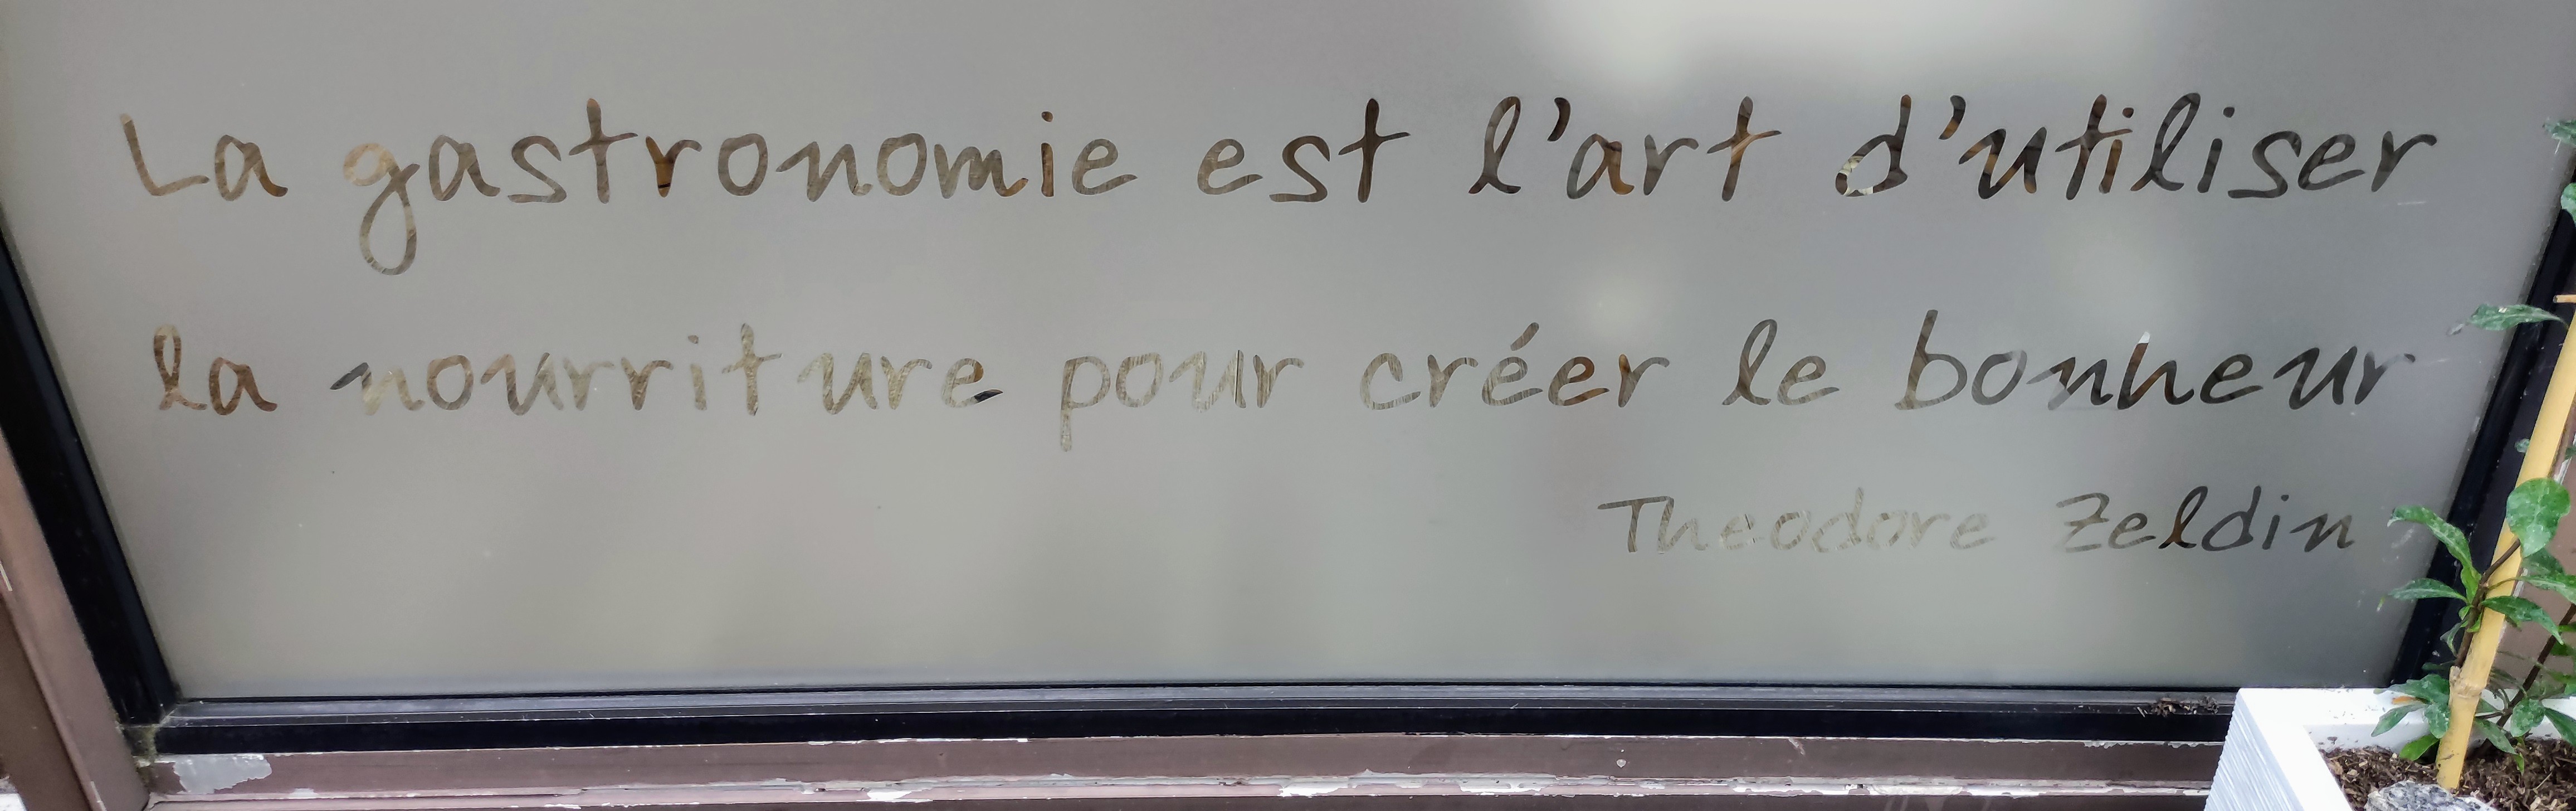 La gastronomie est l'art d'utiliser
la nourriture pour créer le bonheur
Theodore Zeldin